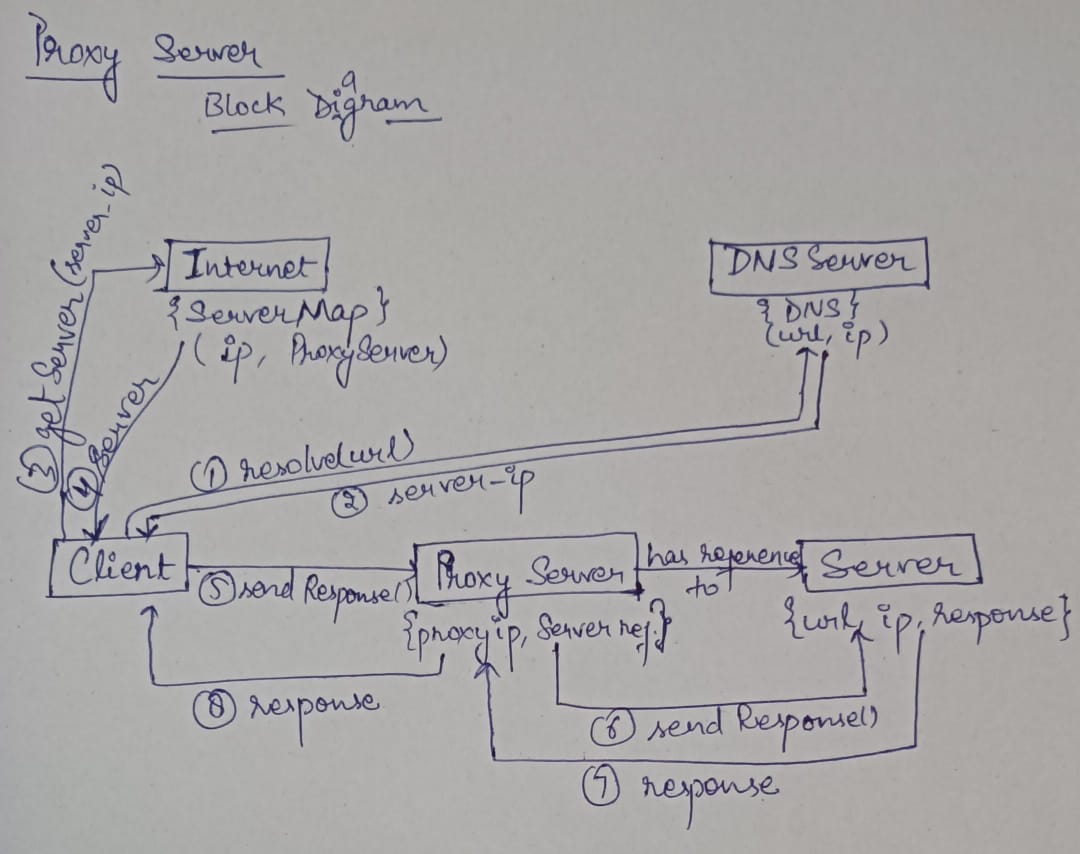 Proxy Server
Block Digram
a
Internet
{ServerMap}
(ip, ProxyServer)
DNS Server
{DNS}
(url, ip)
③ getServer(server-ip)
④ Server
① resolve(url)
② server-ip
Client
⑤ send Response()
Proxy Server
{proxyip, Server ref.}
has reference
to
Server
{url, ip, response}
⑥ send Response()
⑦ response
⑧ response